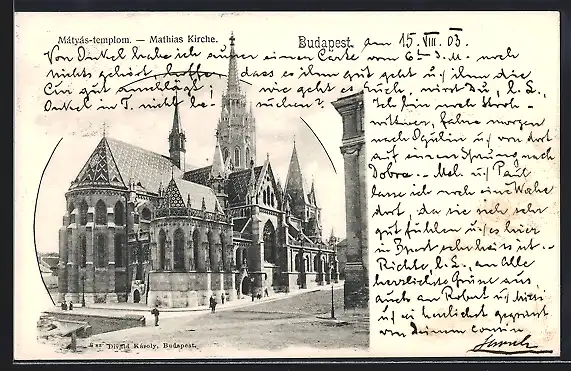 Mátyás-templom. — Mathias Kirche.
Budapest, am 15. VIII. 03.
Von Onkel habe ich außer einen Carte vom 6ten d. M. noch
nichts gehört, hoffen dass es ihm gut geht u/ ihm die
Cur gut anschlägt! wie geht es Euch, wirst Du, l. S.,
Onkel in T. nicht besuchen?
Ich bin noch Stroh-
wittwer, fahre morgen
nach Ogulin u/ von dort
auf einen Sprung nach
Dobra. — u/ Paul
lasse ich noch eine Woche
dort, da sie sich sehr
gut fühlen u/ es hier
in Bpest sehr heiss ist. —
Richte, l. S., an Alle
herzlichste Grüsse aus
auch an Robert u/
u/ sei herzlichst gegrüsst
von Deinem Cousin
Divald Károly, Budapest.